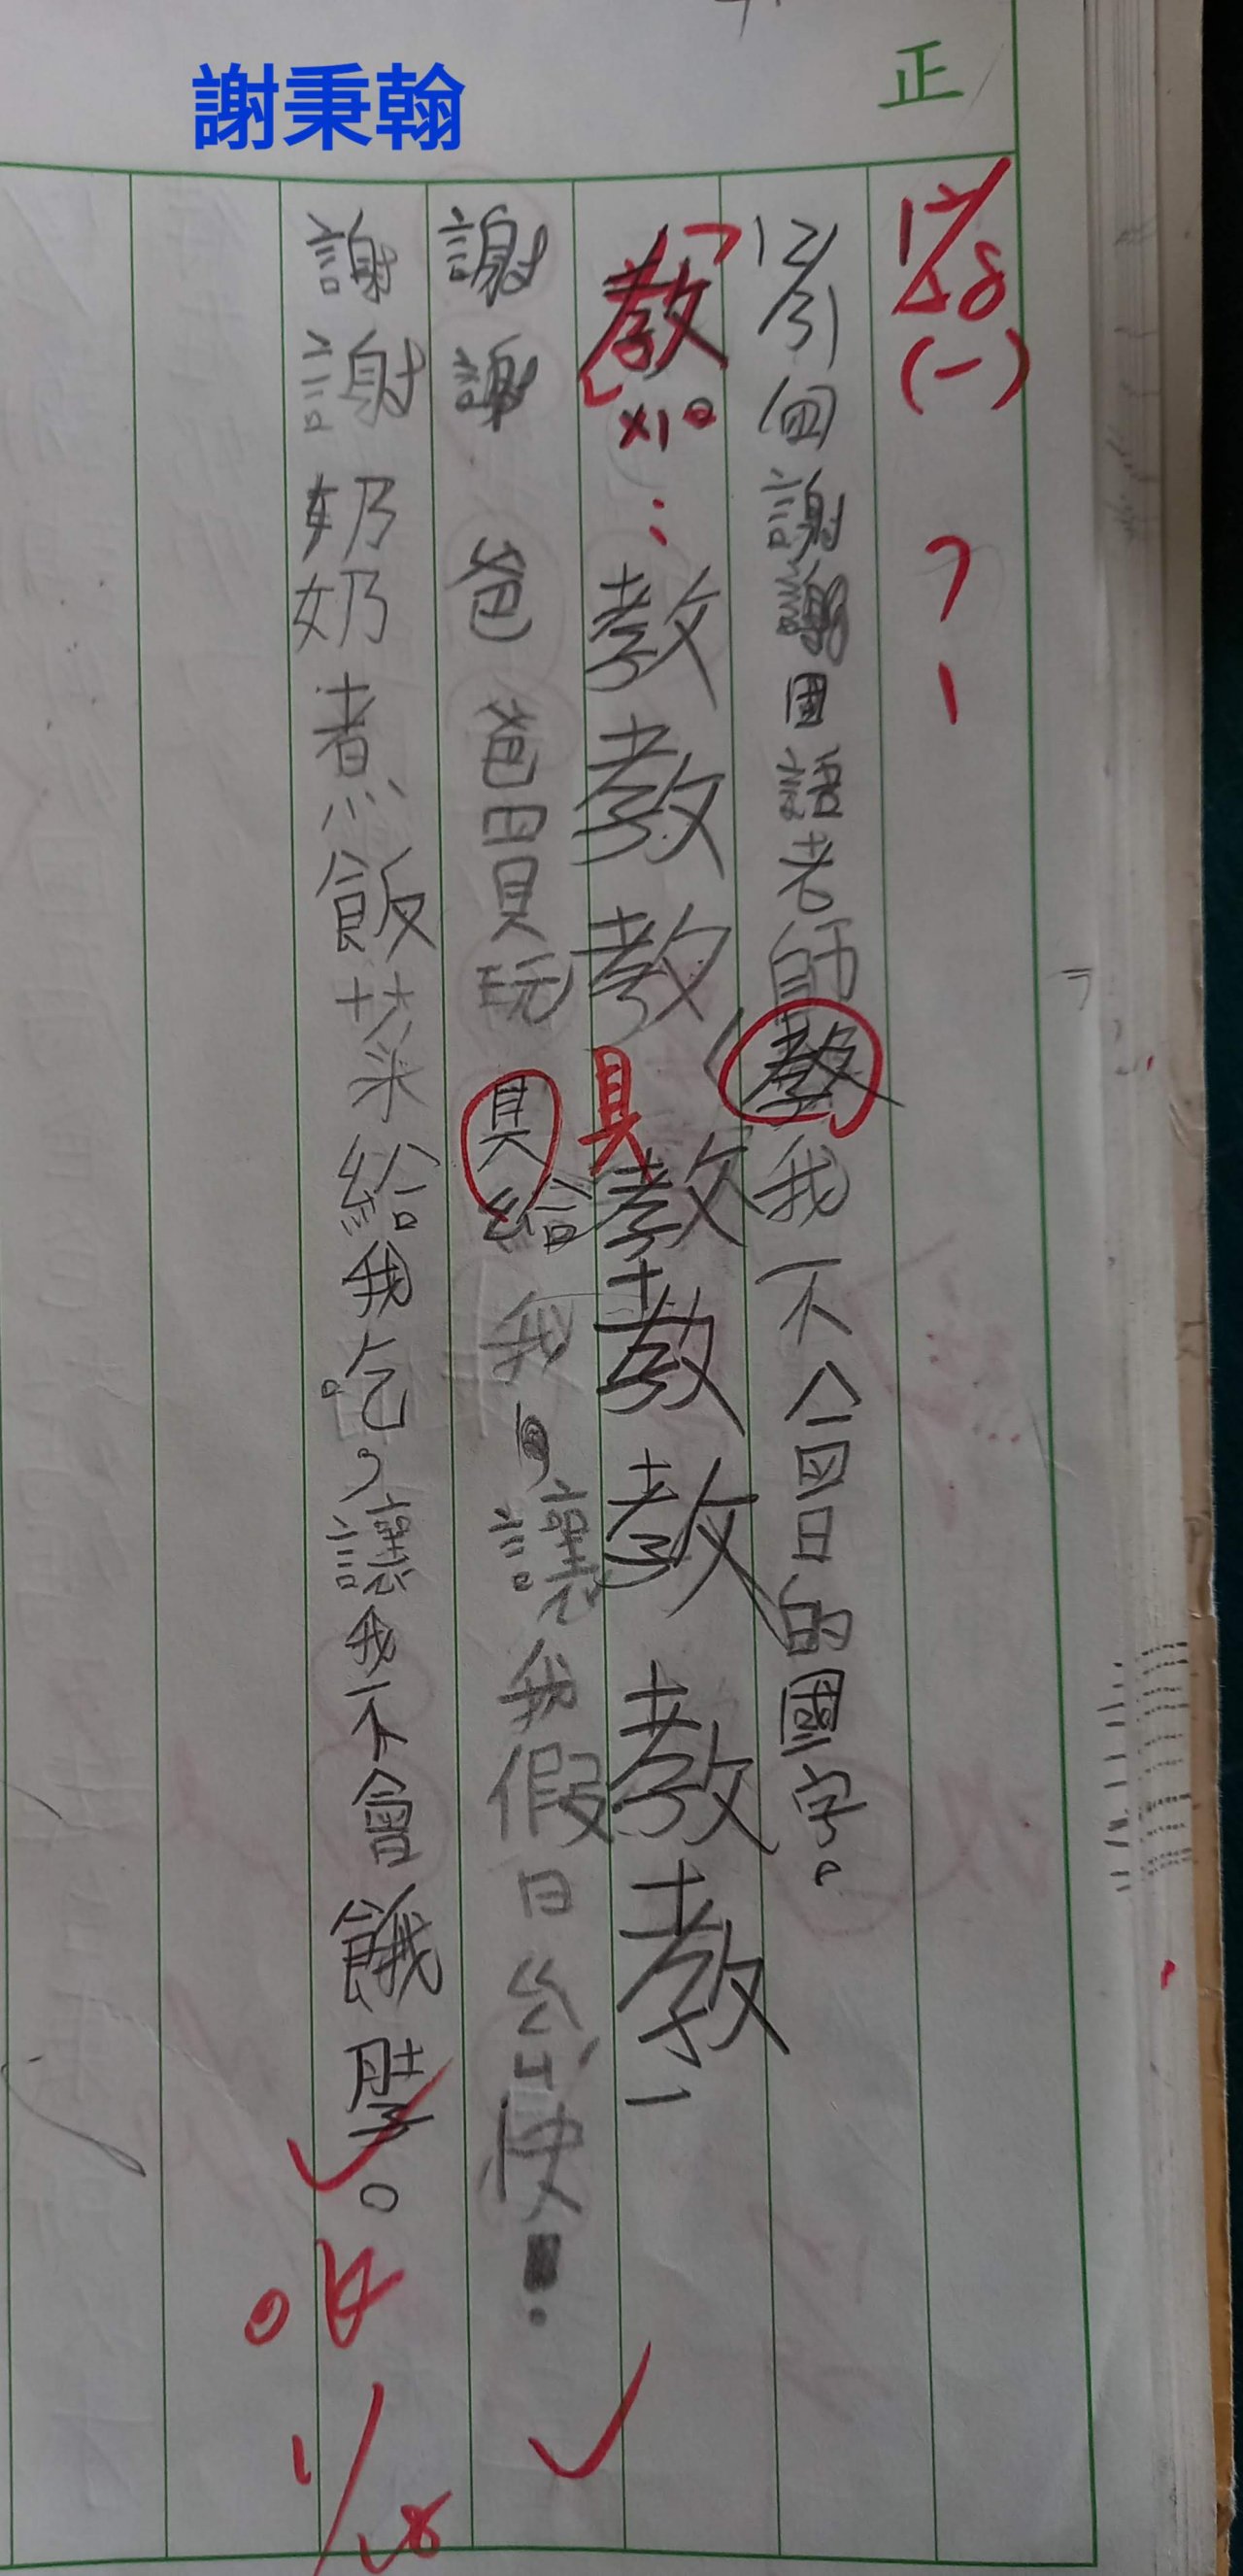 謝秉翰
正
12/28
(一)
12/31回謝謝國語老師教我不會的國字。
教
x10
:
教教教教教教教教
具
謝謝爸爸買玩具給我,讓我假日愉快!
謝謝奶奶煮飯菜給我吃,讓我不會餓肚子。